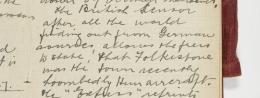 the British Censor
after all the world
finding out from German
sources, allows the press
to state, that Folkestone
was the town recently
bombed by Hun aircraft.
the "Express" reprints